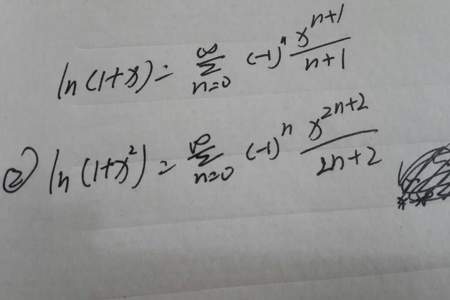 ln(1+x) = ∑_{n=0}^{∞} (-1)^n \frac{x^{n+1}}{n+1}
② ln(1+x^2) = ∑_{n=0}^{∞} (-1)^n \frac{x^{2n+2}}{2n+2}